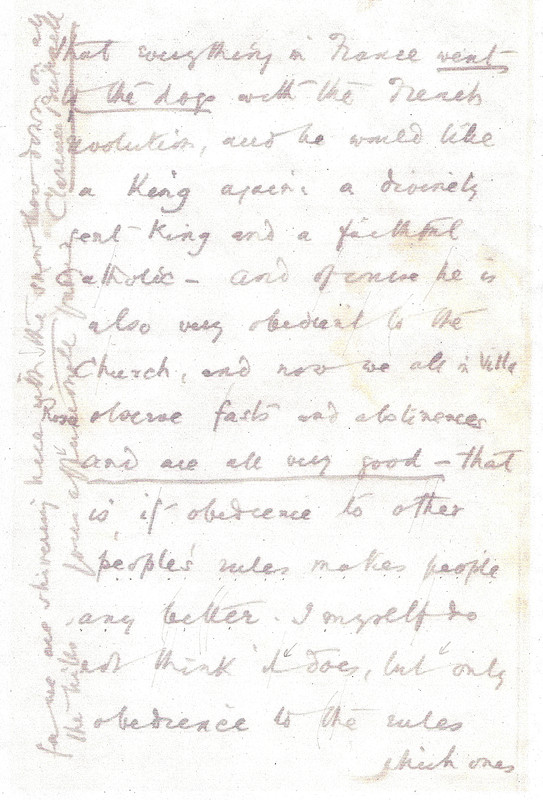 that everything in France went
to the dogs with the French
revolution, and he would like
a King again: a divinely
sent King and a faithful
Catholic – and of course he is
also very obedient to the
Church, and now we all in Villa
Rosa observe fasts and abstinences
and are all very good – that
is if obedience to other
people's rules makes people
any better. I myself do
not think it does, but only
obedience to the rules
which ones
we are shivering here with the snow low down on all
the hills yours affectionate friend